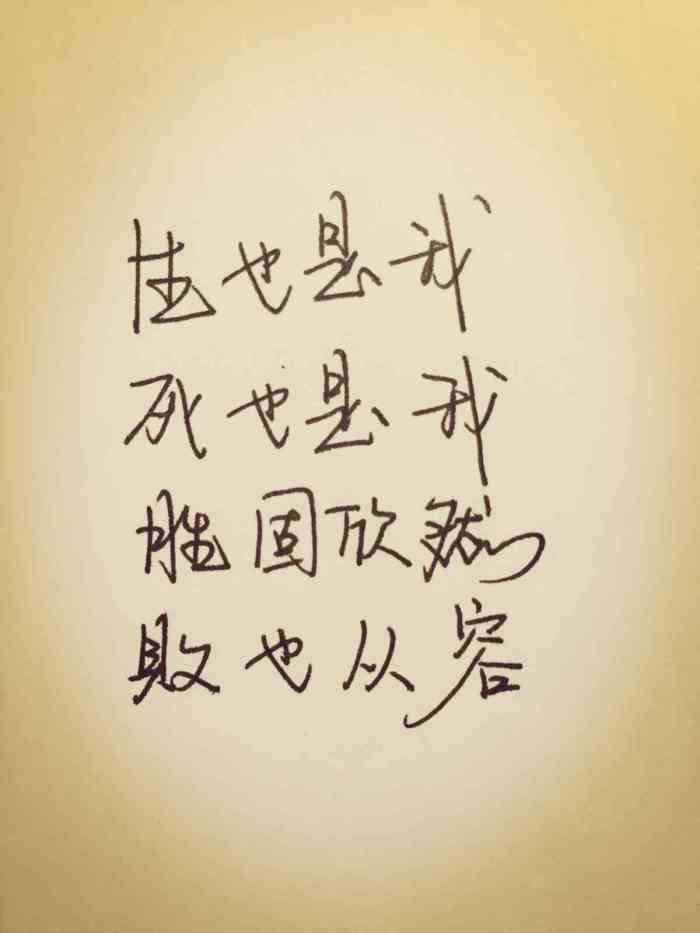 性也是我
死也是我
胜固欣然
敗也从容